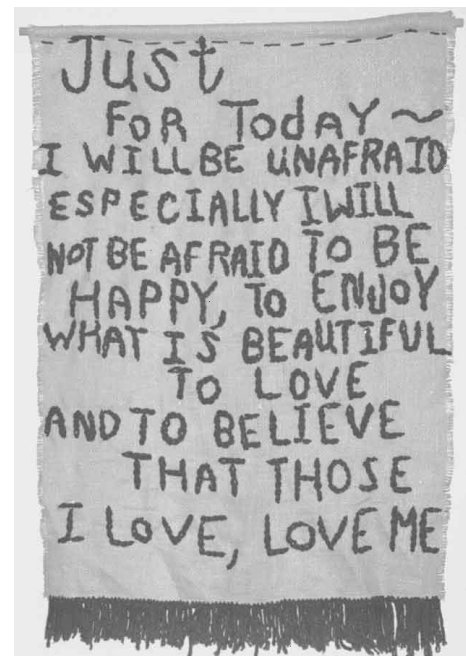 Just
FOR TodAY~
I WILL BE UNAFRAID
ESPECIALLY I WILL
NOT BE AFRAID TO BE
HAPPY, TO ENJOY
WHAT IS BEAUTIFUL
TO LOVE
AND TO BELIEVE
THAT THOSE
I LOVE, LOVE ME